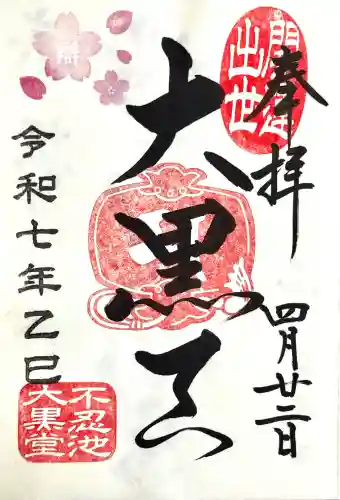 奉拝
四月廿二日
開運
出世
大黒天
令和七年乙巳
不忍池
大黒堂